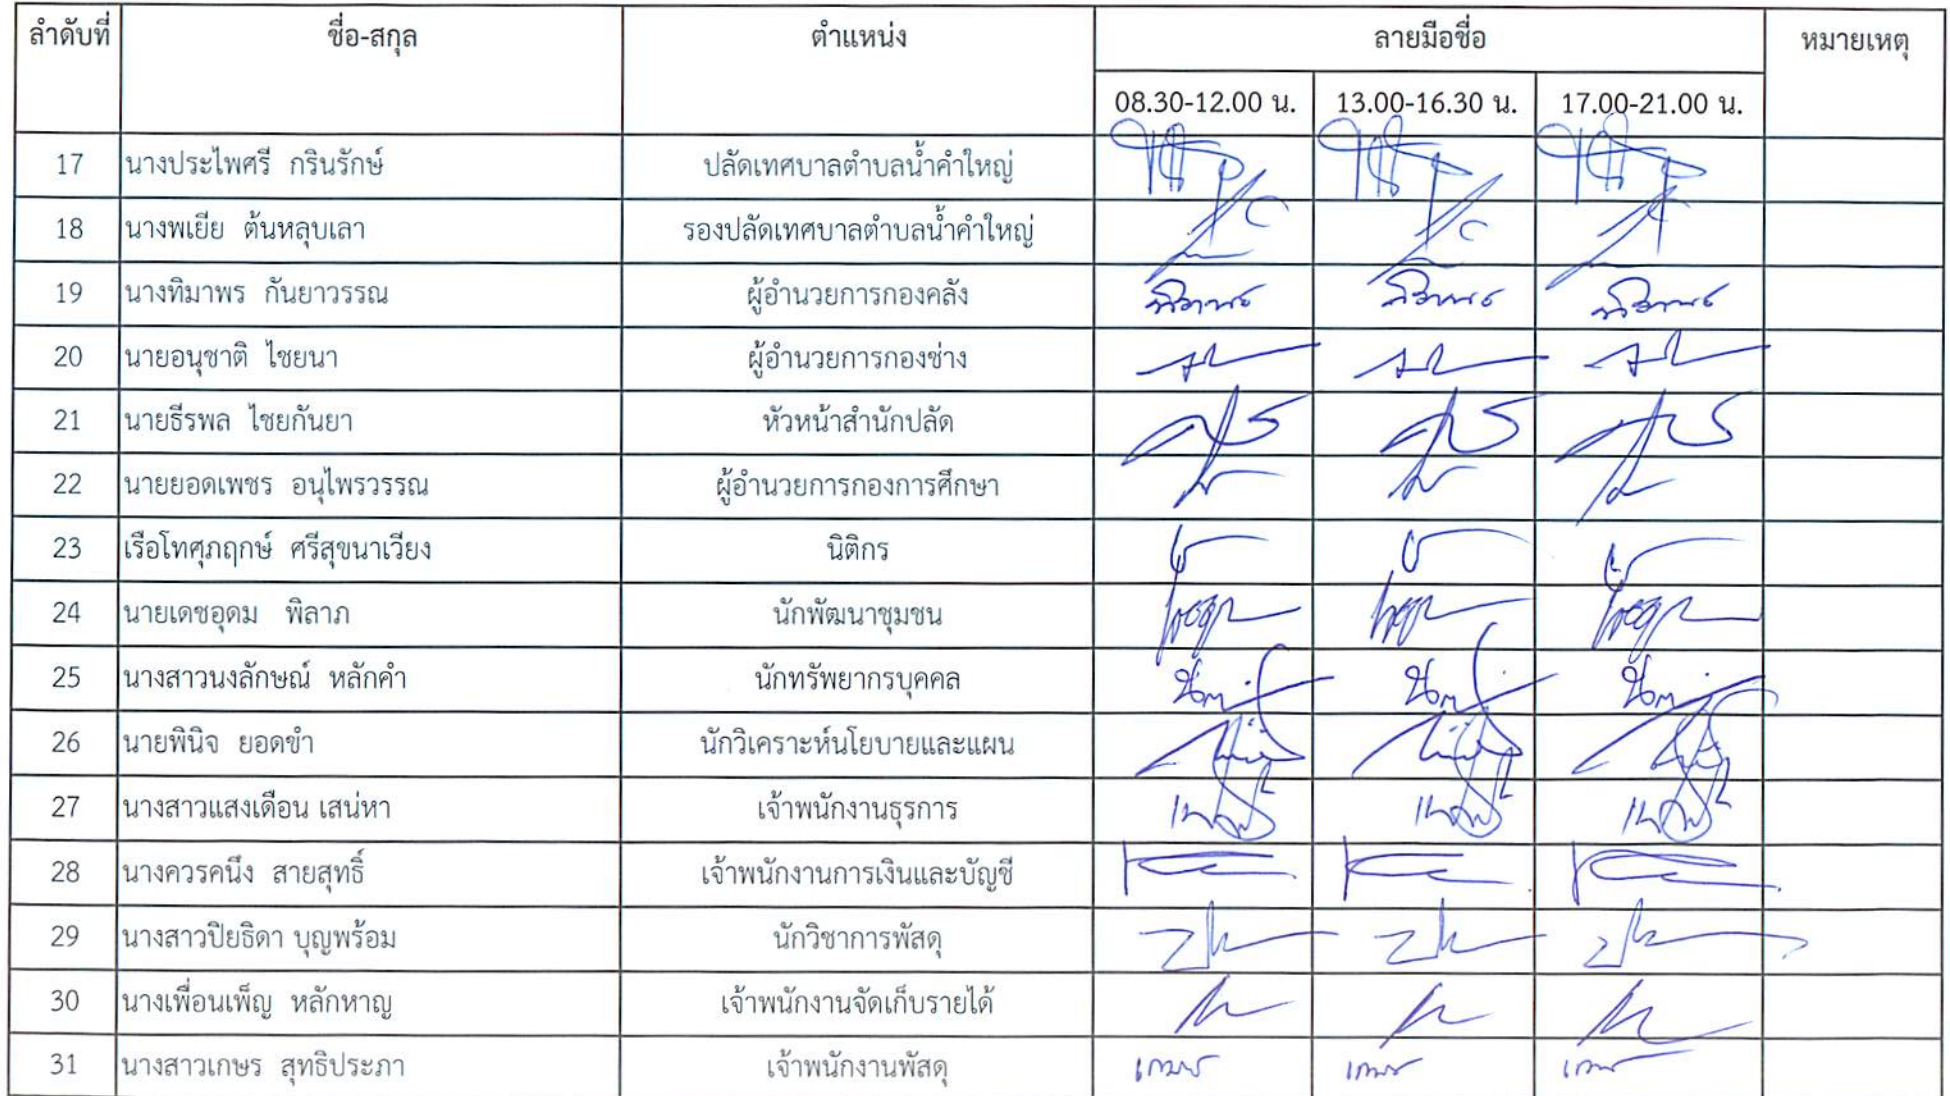 ลำดับที่ ชื่อ-สกุล ตำแหน่ง ลายมือชื่อ หมายเหตุ
08.30-12.00 น. 13.00-16.30 น. 17.00-21.00 น.
17 นางประไพศรี กรินรักษ์ ปลัดเทศบาลตำบลน้ำคำใหญ่
18 นางพเยีย ต้นหลุบเลา รองปลัดเทศบาลตำบลน้ำคำใหญ่
19 นางทิมาพร กันยาวรรณ ผู้อำนวยการกองคลัง
20 นายอนุชาติ ไชยนา ผู้อำนวยการกองช่าง
21 นายธีรพล ไชยกันยา หัวหน้าสำนักปลัด
22 นายยอดเพชร อนุไพรวรรณ ผู้อำนวยการกองการศึกษา
23 เรือโทศุภฤกษ์ ศรีสุขนาเวียง นิติกร
24 นายเดชอุดม พิลาภ นักพัฒนาชุมชน
25 นางสาวนงลักษณ์ หลักคำ นักทรัพยากรบุคคล
26 นายพินิจ ยอดขำ นักวิเคราะห์นโยบายและแผน
27 นางสาวแสงเดือน เสน่หา เจ้าพนักงานธุรการ
28 นางควรคนึง สายสุทธิ์ เจ้าพนักงานการเงินและบัญชี
29 นางสาวปิยธิดา บุญพร้อม นักวิชาการพัสดุ
30 นางเพื่อนเพ็ญ หลักหาญ เจ้าพนักงานจัดเก็บรายได้
31 นางสาวเกษร สุทธิประภา เจ้าพนักงานพัสดุ เกษร เกษร